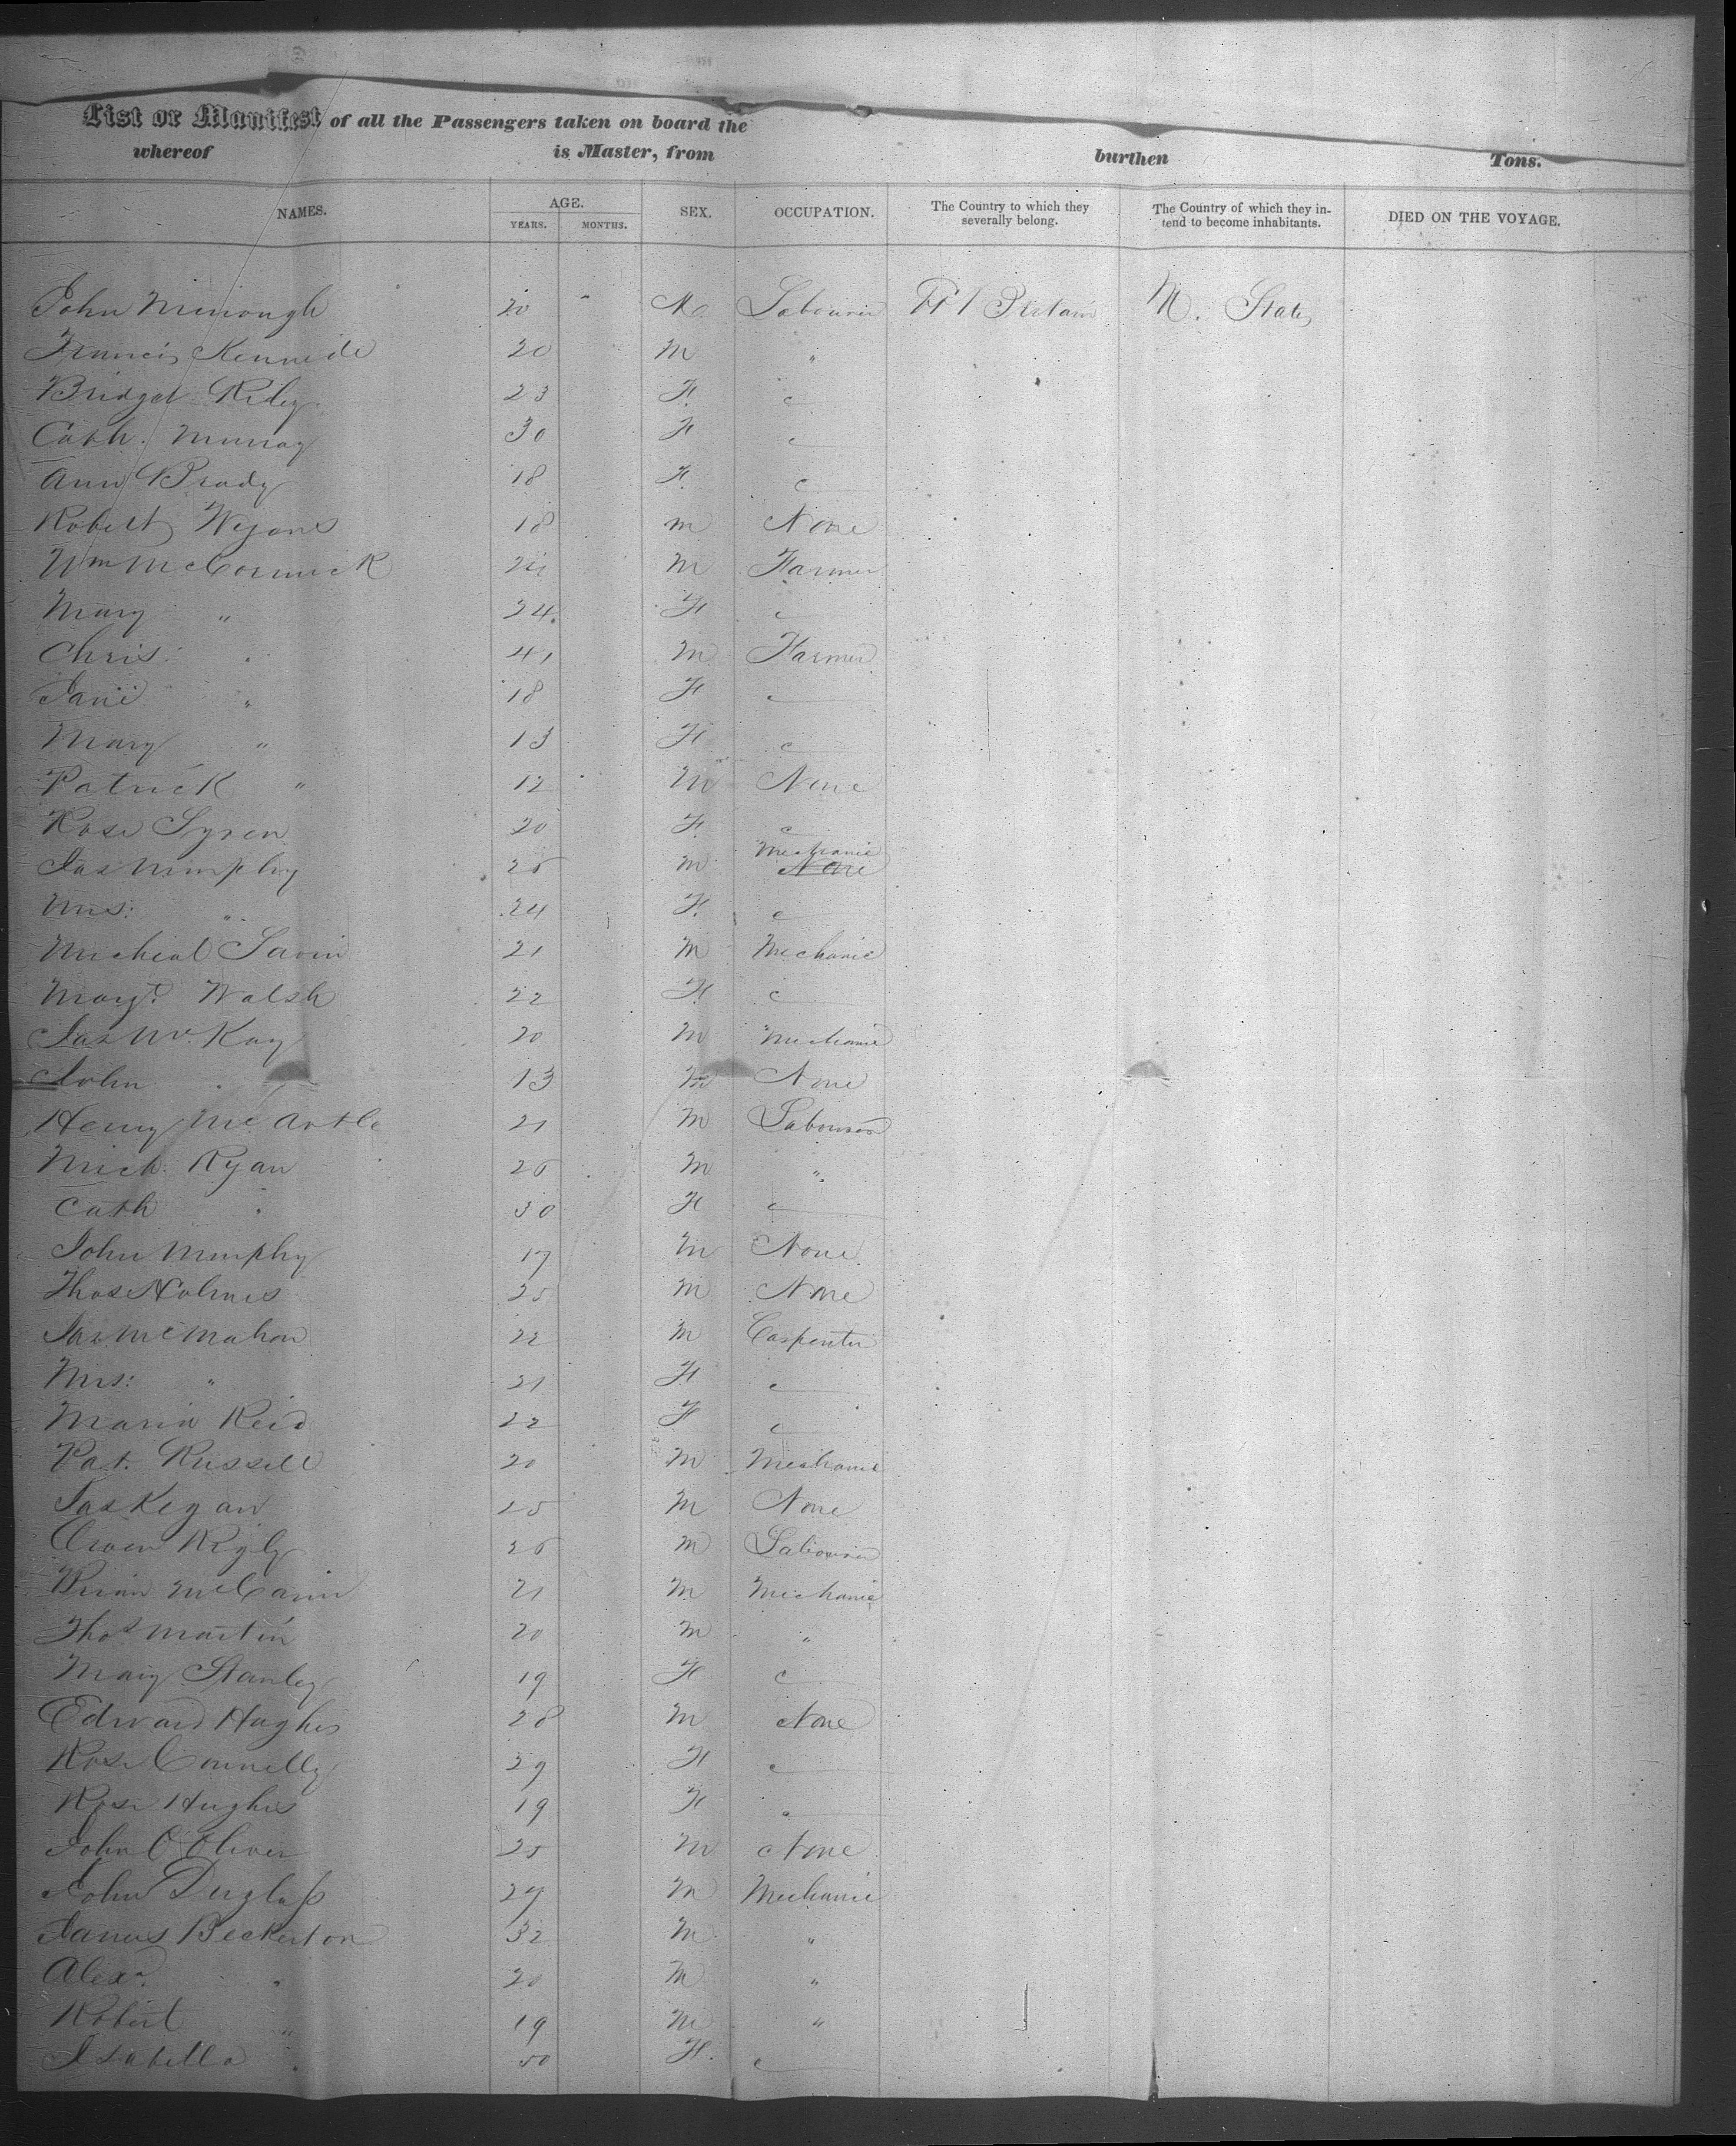 List or Manifest of all the Passengers taken on board the
whereof is Master, from burthen Tons.
NAMES. AGE. YEARS. MONTHS. SEX. OCCUPATION. The Country to which they severally belong. The Country of which they intend to become inhabitants. DIED ON THE VOYAGE.
John 20 M Labourer Gt Britain U. States
Francis Kennede 20 M "
Bridget Riley 23 F
Cath. Murray 30 F
Ann Brady 18 F
Robert 18 M None
Wm McCormick 24 M Farmer
Mary " 24 F
Chris: 41 M Farmer
Jane " 18 F
Mary " 13 F
Patrick " 12 M None
Rose 20 F
Jas Murphy M Mechanic None
Mrs: " 24 F
Micheal 21 M Mechanic
Margt Walsh 22 F
Jas Mc Kay 20 M Mechanic
John 13 M None
Henry Mc Ardle 21 M Labourer
Mich. Ryan 26 M "
Cath 30 F
John Murphy 17 M None
Thos Holmes 25 M None
Jas McMahon 22 M Carpenter
Mrs: " 21 F
Maria Reid 22 F
Pat. Russell 20 M Mechanic
Jas Kegan 25 M None
Owen 26 M Labourer
Brian McCann 21 M Mechanic
Thos Martin 20 M "
Mary Stanley 19 F
Edward Hughes 28 M None
Rose Connelly 29 F
Rose Hughes 19 F
John O Oliver 25 M None
John Duglass 27 M Mechanic
James Beckerton 32 M "
Alexr. " 20 M "
Robert " 19 M "
Isabella " 50 F